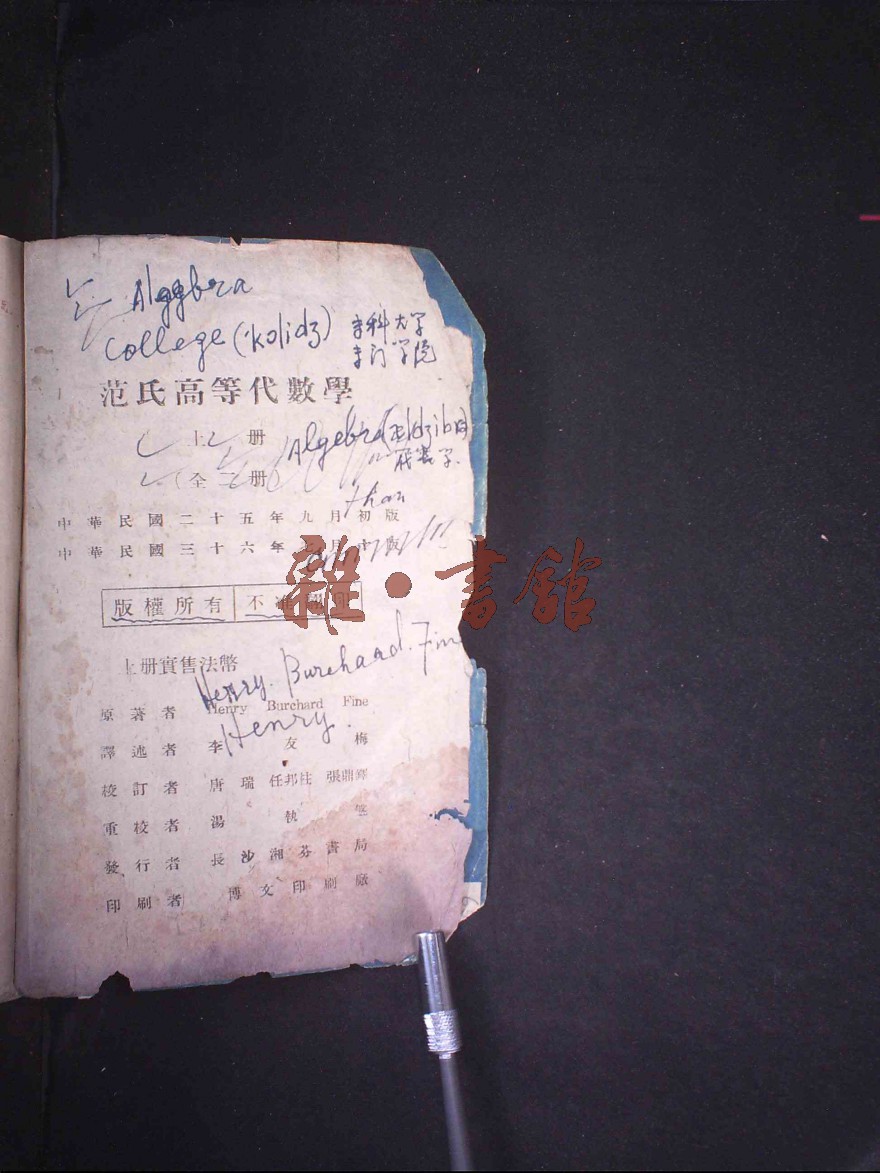 Algebra
College ('kolidʒ) 专科大学
专门学院
范氏高等代數學
上册
Algebra
代数学
全二册
than
中華民國二十五年九月初版
中華民國三十六年七月十版
雜·書館
版權所有 不准翻印
上册實售法幣
Henry. Burchard. Fine
原著者 Henry Burchard Fine
Henry.
譯述者 李友梅
校訂者 唐瑞 任邦柱 張鼎
重校者 湯執
發行者 長沙湘芬書局
印刷者 博文印刷廠